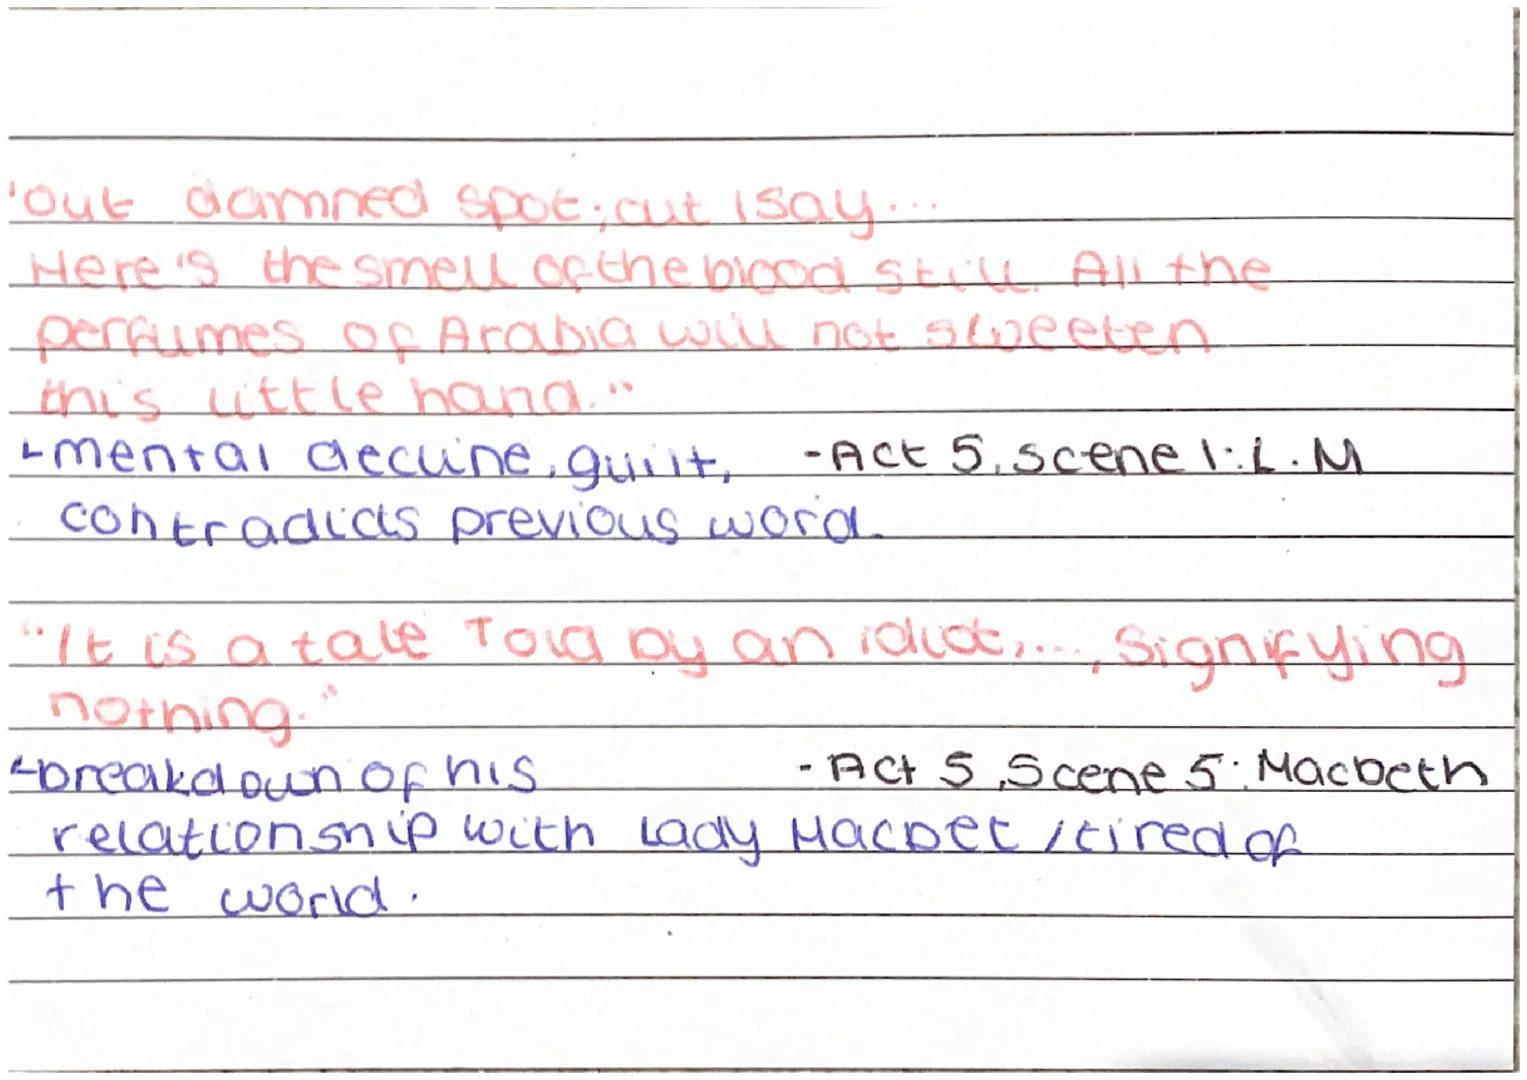 'Out damned spot; out I say...
Here's the smell of the blood still. All the
perfumes of Arabia will not sweeten
this little hand."
mental decline, guilt, -Act 5, scene 1: L.M
contradicts previous word.
"It is a tale Told by an idiot,..., Signifying
nothing."
breakdown of his - Act 5, Scene 5: Macbeth
relationship with Lady Macbet / tired of
the world.